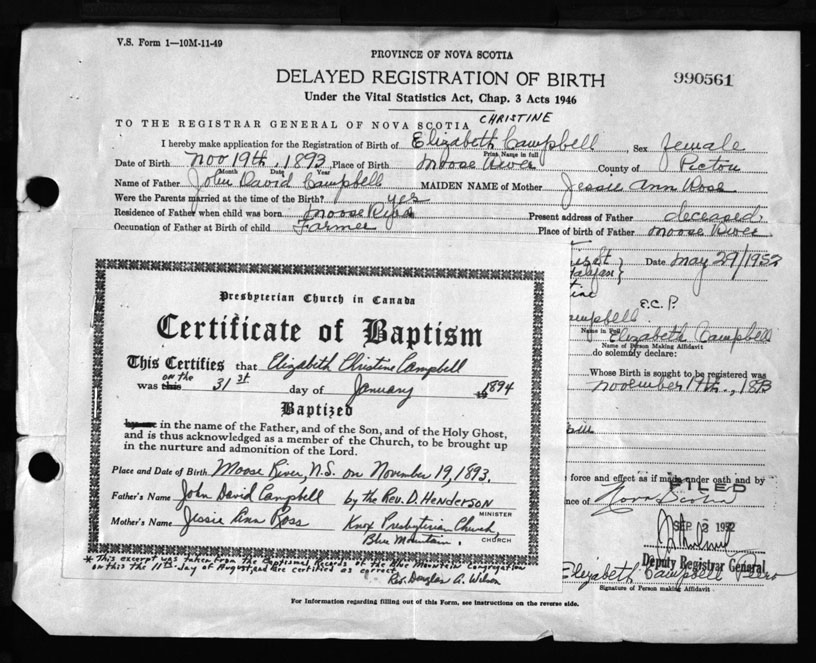 V.S. Form 1—10M-11-49
PROVINCE OF NOVA SCOTIA
DELAYED REGISTRATION OF BIRTH
990561
Under the Vital Statistics Act, Chap. 3 Acts 1946
CHRISTINE
TO THE REGISTRAR GENERAL OF NOVA SCOTIA
I hereby make application for the Registration of Birth of Elizabeth Campbell, Sex female
Print Name in full
Date of Birth Nov 19th, 1893, Place of Birth Moose River County of Pictou
Month Date Year
Name of Father John David Campbell MAIDEN NAME of Mother Jessie Ann Ross
Were the Parents married at the time of the Birth? yes
Residence of Father when child was born Moose River Present address of Father deceased.
Occupation of Father at Birth of child Farmer Place of birth of Father Moose River
Date May 29/1952
Presbyterian Church in Canada
Certificate of Baptism
This Certifies that Elizabeth Christine Campbell
on the
was this 31st day of January 1894
Baptized
by me in the name of the Father, and of the Son, and of the Holy Ghost,
and is thus acknowledged as a member of the Church, to be brought up
in the nurture and admonition of the Lord.
Place and Date of Birth Moose River, N.S. on November 19, 1893.
Father's Name John David Campbell by the Rev. D. Henderson
MINISTER
Mother's Name Jessie Ann Ross Knox Presbyterian Church,
Blue Mountain. CHURCH
* This excerpt was taken from the Baptismal Records of the Blue Mountain Congregation
on this the 11th day of August and are certified as correct.
Rev. Douglas A. Wilson
E.C.P.
Campbell.
Name in Full Elizabeth Campbell
Name of Person Making Affidavit
do solemnly declare:
Whose Birth is sought to be registered was
November 19th, 1893
force and effect as if made under oath and by
FILED
nce of Nova Scotia
SEP 2 1952
Deputy Registrar General
Elizabeth Campbell Peers
Signature of Person making Affidavit
For Information regarding filling out of this Form, see instructions on the reverse side.